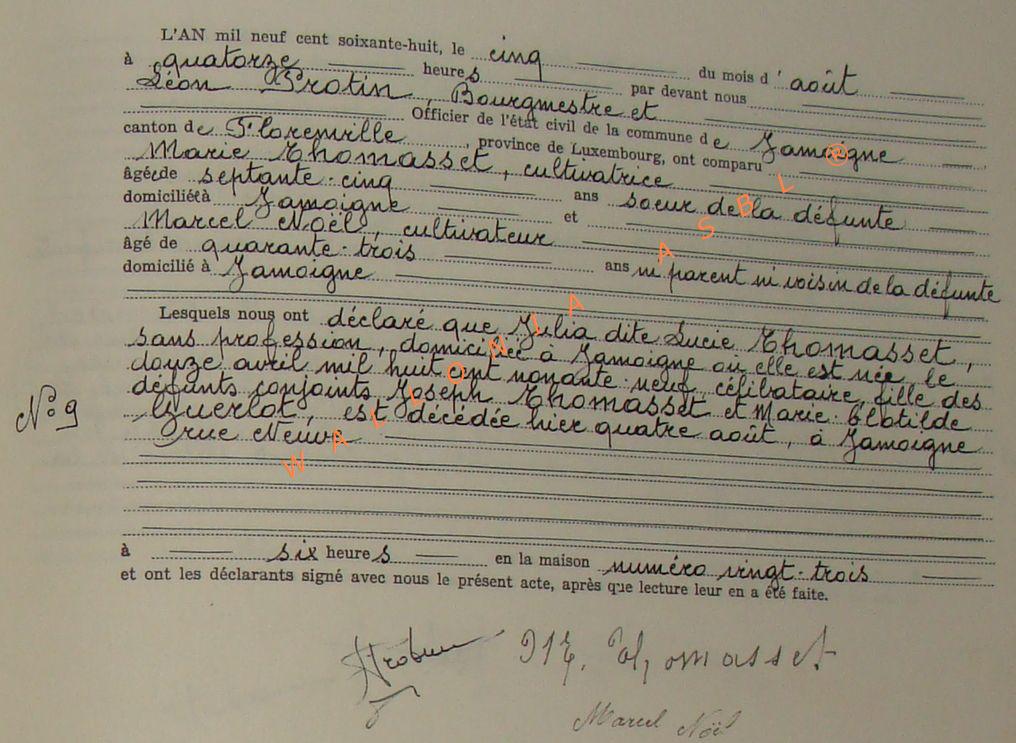 L'AN mil neuf cent soixante-huit, le cinq du mois d'août
à quatorze heures par devant nous
Léon Protin, Bourgmestre et
Officier de l'état civil de la commune de Jamoigne
canton de Florenville, province de Luxembourg, ont comparu
Marie Thomasset, cultivatrice
âgée de septante-cinq ans soeur de la défunte
domiciliée à Jamoigne et
Marcel Noël, cultivateur
âgé de quarante-trois
domicilié à Jamoigne ans ni parent ni voisin de la défunte
Lesquels nous ont déclaré que Julia dite Lucie Thomasset,
sans profession, domiciliée à Jamoigne où elle est née le
douze avril mil huit cent nonante-neuf, célibataire, fille des
défunts conjoints Joseph Thomasset et Marie-Clotilde
Guerlot, est décédée hier quatre août, à Jamoigne
rue Neuve
N° 9
à six heures en la maison numéro vingt-trois
et ont les déclarants signé avec nous le présent acte, après que lecture leur en a été faite.
Thomasset
Marcel Noël
WALLONIA ASBL ®